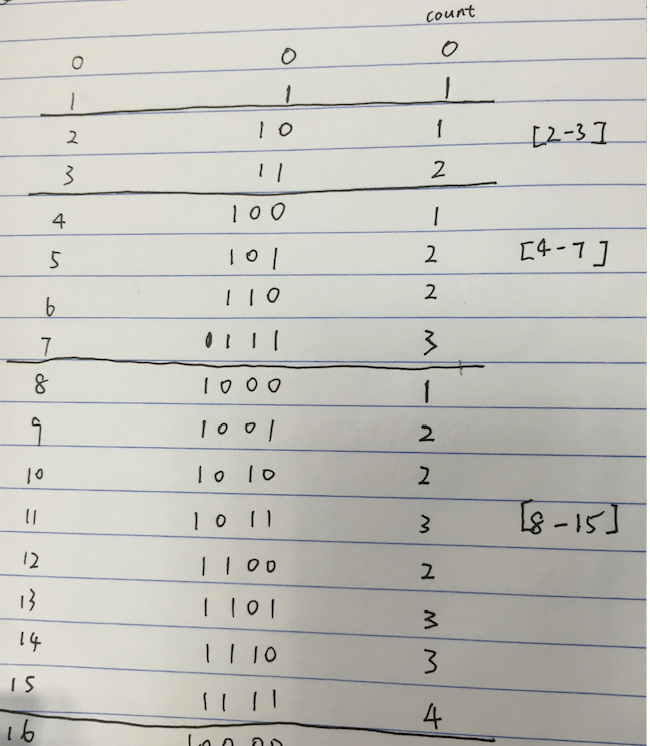 count
0 0 0
1 1 1
2 10 1 [2-3]
3 11 2
4 100 1
5 101 2 [4-7]
6 110 2
7 0111 3
8 1000 1
9 1001 2
10 1010 2
11 1011 3 [8-15]
12 1100 2
13 1101 3
14 1110 3
15 1111 4
16